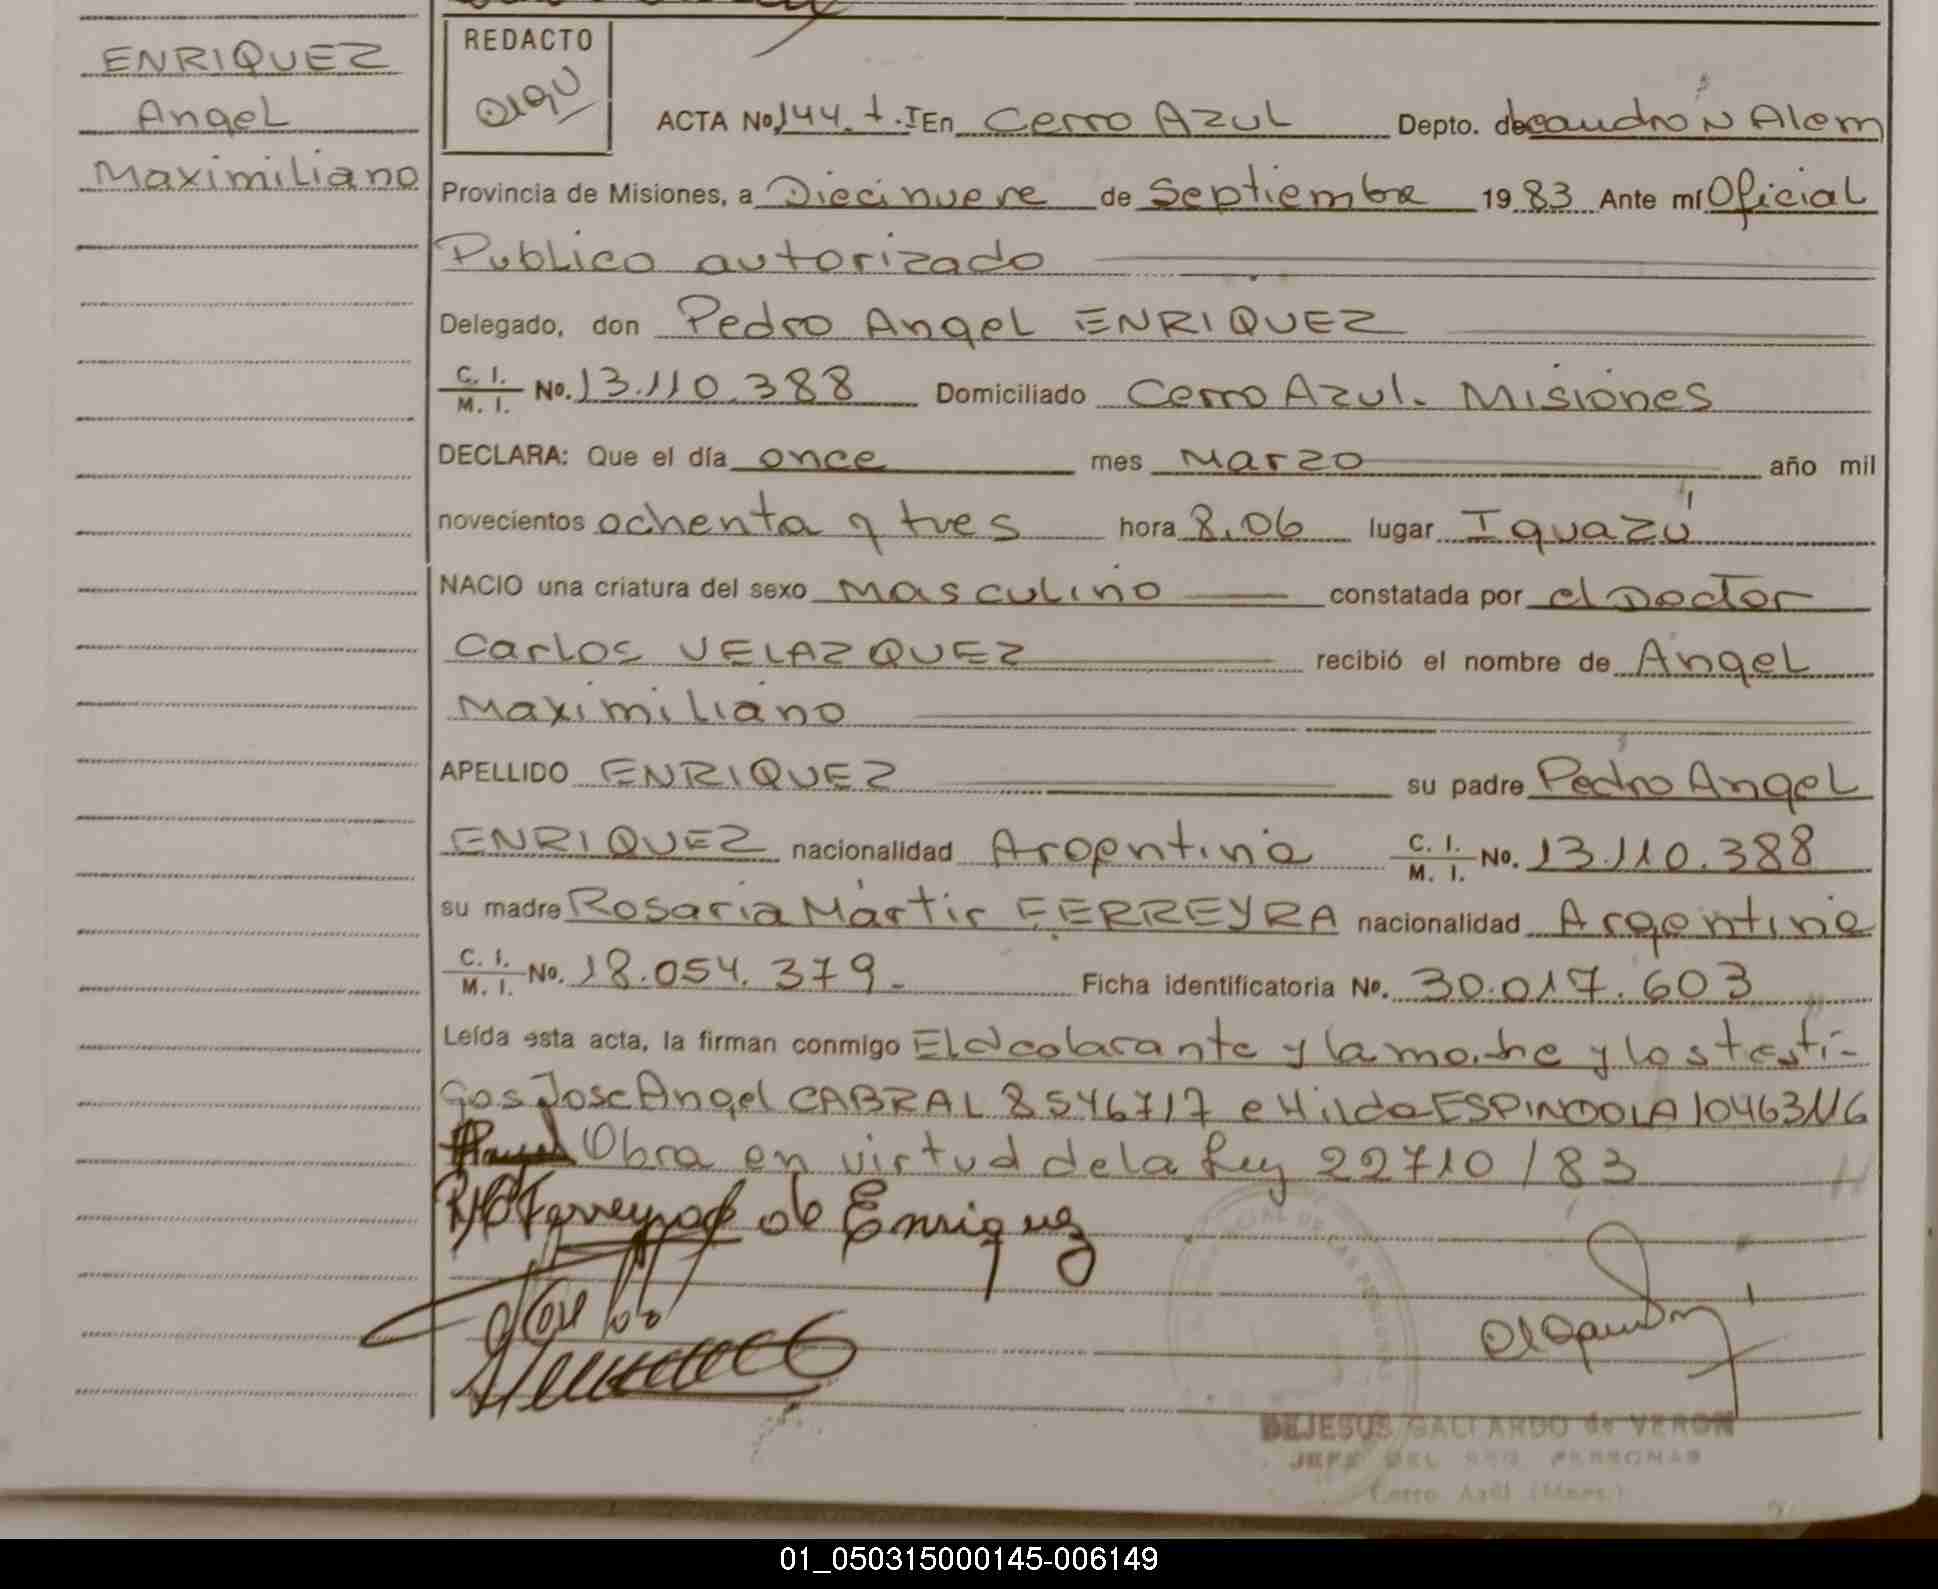 ENRIQUEZ
Angel
Maximiliano
REDACTO
ACTA No 144. t. I En Cerro Azul Depto. de Leandro N Alem
Provincia de Misiones, a Diecinueve de Septiembre 1983 Ante mí Oficial
Publico autorizado
Delegado, don Pedro Angel ENRIQUEZ
C. I. / M. I. No. 13.110.388 Domiciliado Cerro Azul. Misiones
DECLARA: Que el día once mes Marzo año mil
novecientos ochenta y tres hora 8.06 lugar Iguazú
NACIO una criatura del sexo Masculino constatada por el Doctor
Carlos VELAZQUEZ recibió el nombre de Angel
Maximiliano
APELLIDO ENRIQUEZ su padre Pedro Angel
ENRIQUEZ nacionalidad Argentina C. I. / M. I. No. 13.110.388
su madre Rosaria Mártir FERREYRA nacionalidad Argentina
C. I. / M. I. No. 18.054.379.- Ficha identificatoria No. 30.017.603
Leída esta acta, la firman conmigo El declarante y la madre y los testi-
gos Jose Angel CABRAL 8546717 e Hilda ESPINDOLA 10463116
Obra en virtud de la Ley 22710/83
Ferreyra de Enriquez
DEJESUS GALLARDO de VERON
JEFE DEL REG. PERSONAS
Cerro Azul (Mnes.)
01_050315000145-006149